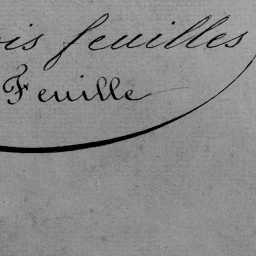 is feuilles
Feuille